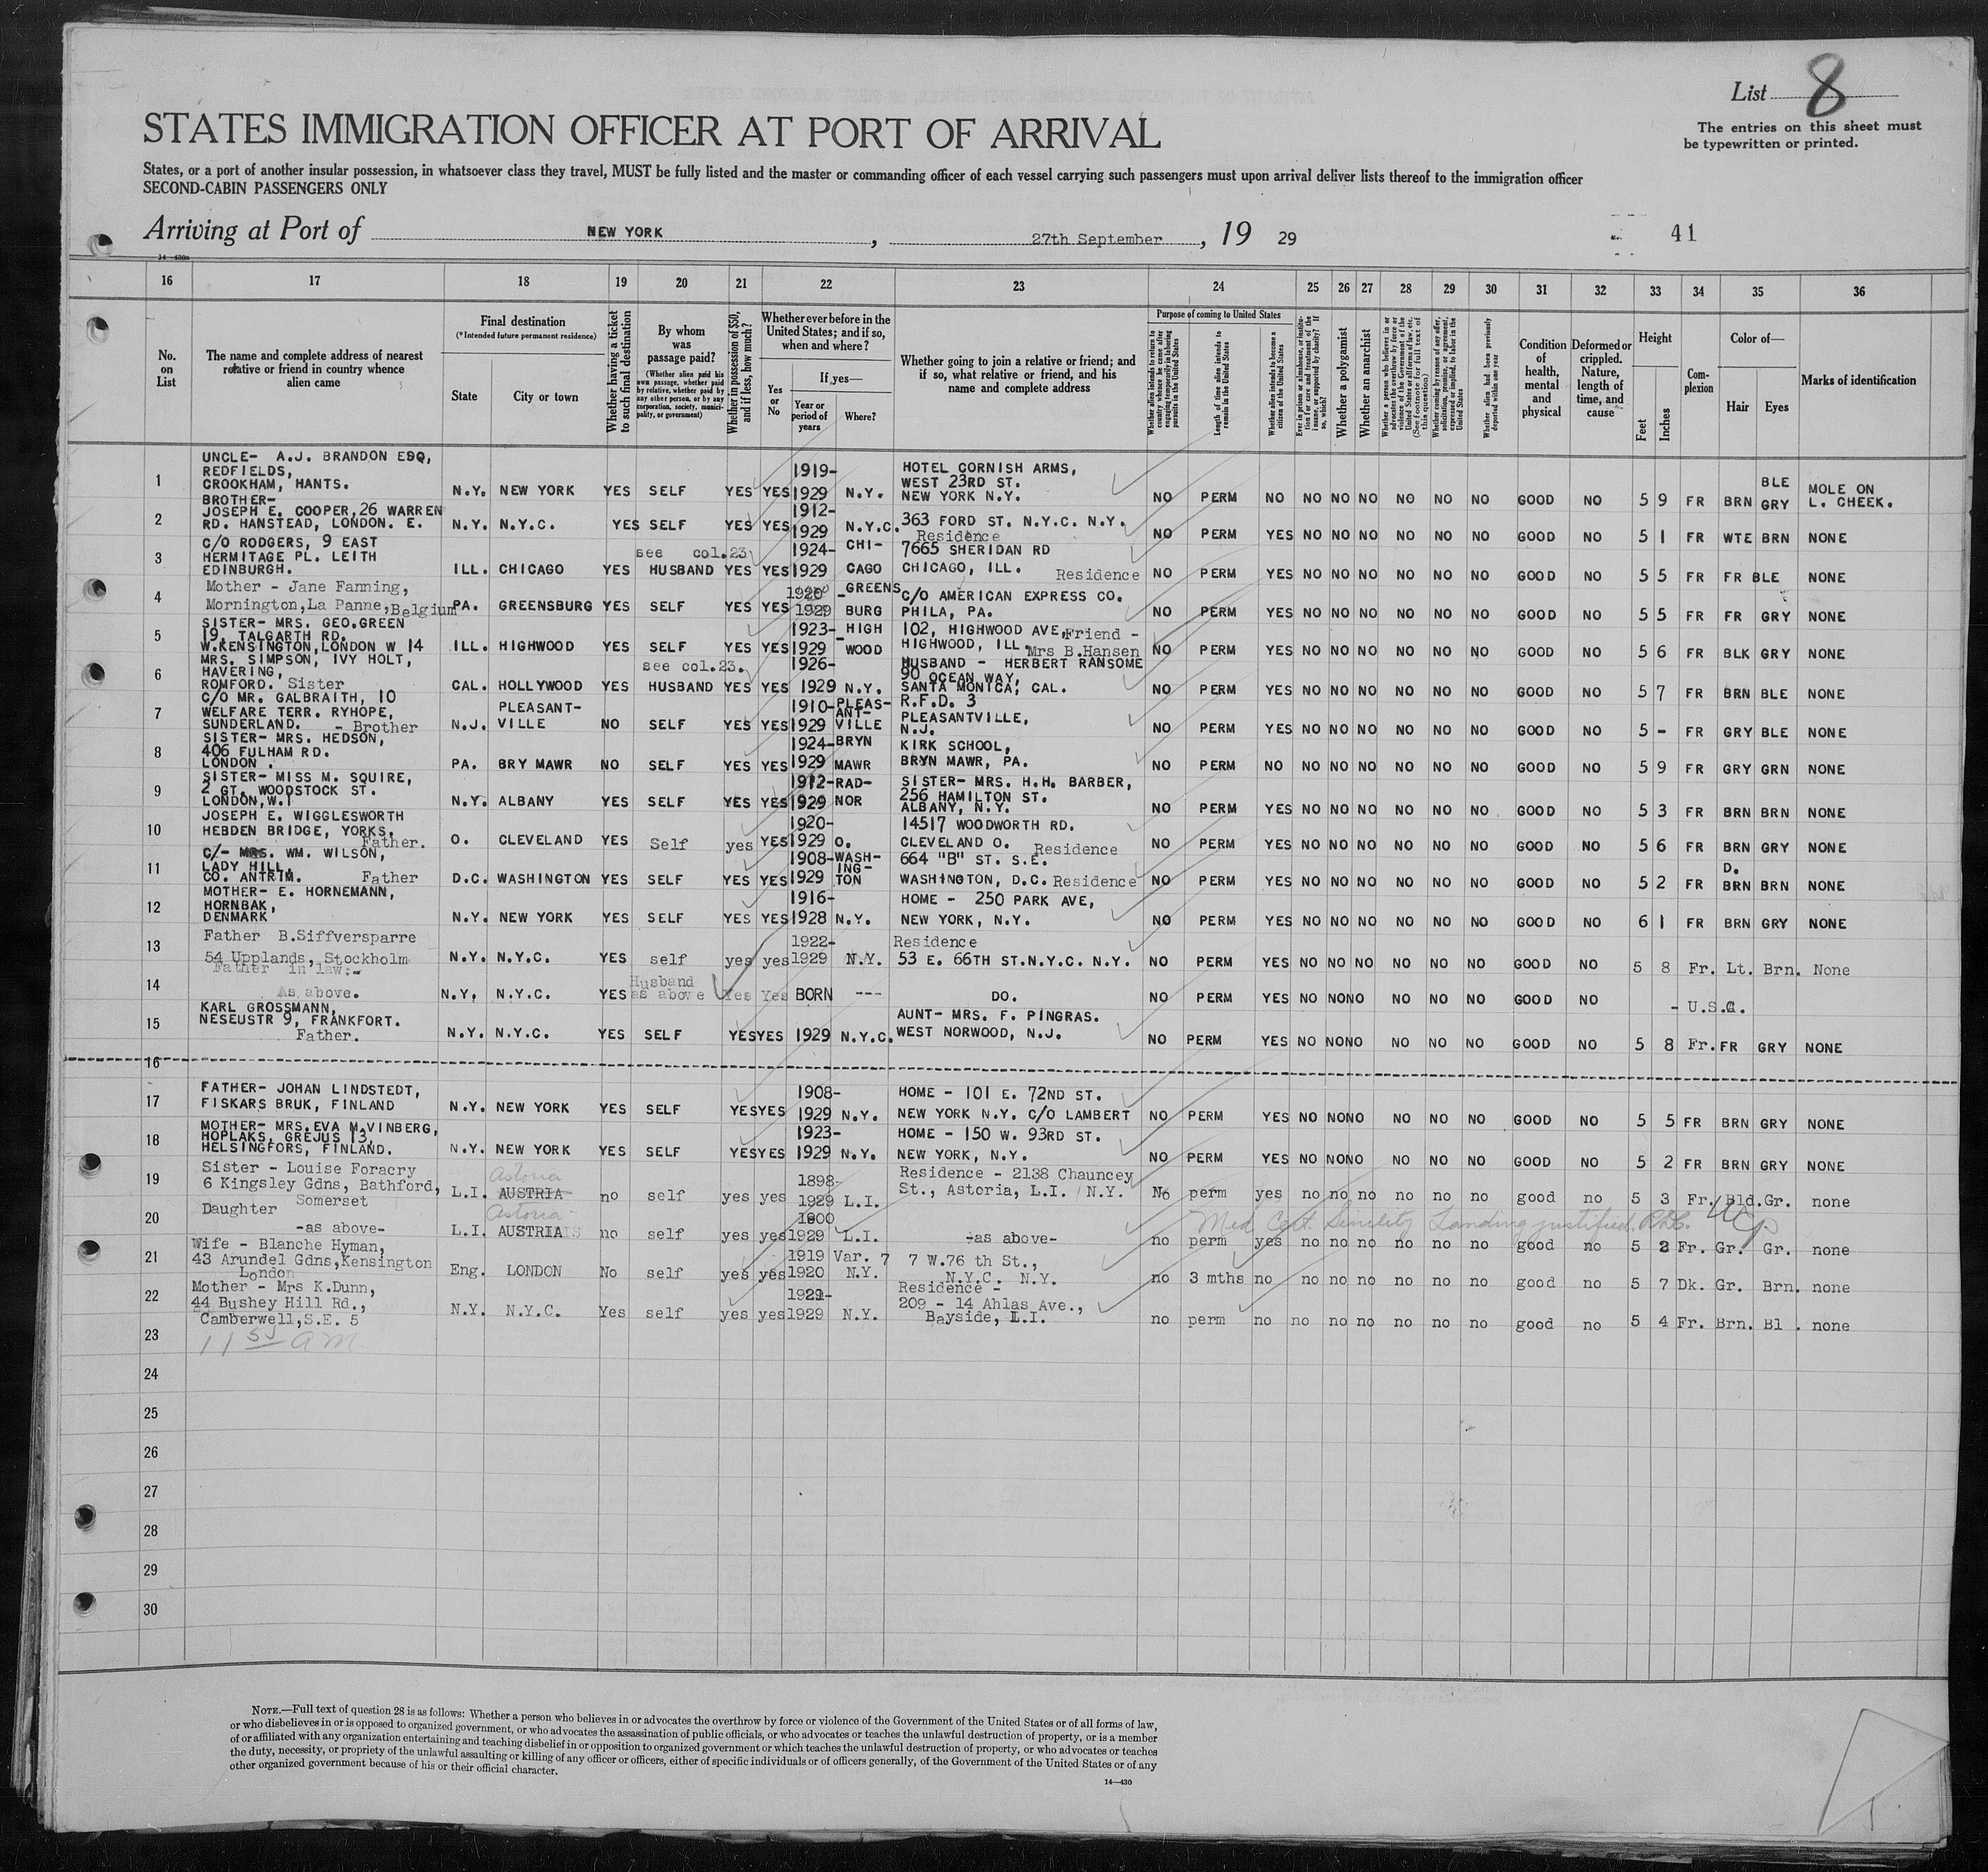 List 8
The entries on this sheet must
be typewritten or printed.
STATES IMMIGRATION OFFICER AT PORT OF ARRIVAL
States, or a port of another insular possession, in whatsoever class they travel, MUST be fully listed and the master or commanding officer of each vessel carrying such passengers must upon arrival deliver lists thereof to the immigration officer
SECOND-CABIN PASSENGERS ONLY
Arriving at Port of NEW YORK, 27th September, 19 29
41
16 17 18 19 20 21 22 23 24 25 26 27 28 29 30 31 32 33 34 35 36
No. on List
The name and complete address of nearest relative or friend in country whence alien came
Final destination
(*Intended future permanent residence)
State
City or town
Whether having a ticket to such final destination
By whom was passage paid?
(Whether alien paid his own passage, whether paid by relative, whether paid by any other person, or by any corporation, society, municipality, or government)
Whether in possession of $50, and if less, how much?
Whether ever before in the United States; and if so, when and where?
Yes or No
If yes—
Year or period of years
Where?
Whether going to join a relative or friend; and if so, what relative or friend, and his name and complete address
Purpose of coming to United States
Whether alien intends to return to country whence he came after engaging temporarily in laboring pursuits in the United States
Length of time alien intends to remain in the United States
Whether alien intends to become a citizen of the United States
Ever in prison or almshouse, or institution for care and treatment of the insane, or supported by charity? If so, which?
Whether a polygamist
Whether an anarchist
Whether a person who believes in or advocates the overthrow by force or violence of the Government of the United States or all forms of law, etc. (See footnote for full text of this question)
Whether coming by reason of any offer, solicitation, promise, or agreement, expressed or implied, to labor in the United States
Whether alien had been previously deported within one year
Condition of health, mental and physical
Deformed or crippled. Nature, length of time, and cause
Height
Feet
Inches
Complexion
Color of—
Hair
Eyes
Marks of identification
1 UNCLE- A.J. BRANDON ESQ, REDFIELDS, CROOKHAM, HANTS. N.Y. NEW YORK YES SELF YES YES 1919-1929 N.Y. HOTEL CORNISH ARMS, WEST 23RD ST. NEW YORK N.Y. NO PERM NO NO NO NO NO NO NO GOOD NO 5 9 FR BRN BLE GRY MOLE ON L. CHEEK.
2 BROTHER- JOSEPH E. COOPER, 26 WARREN RD. HANSTEAD, LONDON. E. N.Y. N.Y.C. YES SELF YES YES 1912-1929 N.Y.C. 363 FORD ST. N.Y.C. N.Y. Residence NO PERM YES NO NO NO NO NO NO GOOD NO 5 1 FR WTE BRN NONE
3 C/O RODGERS, 9 EAST HERMITAGE PL. LEITH EDINBURGH. ILL. CHICAGO YES see col.23 HUSBAND YES YES 1924-1929 CHI-CAGO 7665 SHERIDAN RD CHICAGO, ILL. Residence NO PERM YES NO NO NO NO NO NO GOOD NO 5 5 FR FR BLE NONE
4 Mother - Jane Fanning, Mornington, La Panne, Belgium PA. GREENSBURG YES SELF YES YES 1920 1929 -GREENS BURG C/O AMERICAN EXPRESS CO. PHILA, PA. NO PERM YES NO NO NO NO NO NO GOOD NO 5 5 FR FR GRY NONE
5 SISTER- MRS. GEO.GREEN 19, TALGARTH RD. W.KENSINGTON, LONDON W 14 ILL. HIGHWOOD YES SELF YES YES 1923-1929 HIGH-WOOD 102, HIGHWOOD AVE, HIGHWOOD, ILL. Friend - Mrs B.Hansen NO PERM YES NO NO NO NO NO NO GOOD NO 5 6 FR BLK GRY NONE
6 MRS. SIMPSON, IVY HOLT, HAVERING, ROMFORD. Sister CAL. HOLLYWOOD YES see col.23. HUSBAND YES YES 1926-1929 N.Y. HUSBAND - HERBERT RANSOME 90 OCEAN WAY, SANTA MONICA, CAL. NO PERM YES NO NO NO NO NO NO GOOD NO 5 7 FR BRN BLE NONE
7 C/O MR. GALBRAITH, 10 WELFARE TERR. RYHOPE, SUNDERLAND. - Brother N.J. PLEASANT-VILLE NO SELF YES YES 1910-1929 PLEAS-ANT-VILLE R.F.D. 3 PLEASANTVILLE, N.J. NO PERM YES NO NO NO NO NO NO GOOD NO 5 - FR GRY BLE NONE
8 SISTER- MRS. HEDSON, 406 FULHAM RD. LONDON. PA. BRY MAWR NO SELF YES YES 1924-1929 BRYN MAWR KIRK SCHOOL, BRYN MAWR, PA. NO PERM NO NO NO NO NO NO NO GOOD NO 5 9 FR GRY GRN NONE
9 SISTER- MISS M. SQUIRE, 2 GT. WOODSTOCK ST. LONDON, W.1 N.Y. ALBANY YES SELF YES YES 1912-1929 RAD-NOR SISTER- MRS. H.H. BARBER, 256 HAMILTON ST. ALBANY, N.Y. NO PERM YES NO NO NO NO NO NO GOOD NO 5 3 FR BRN BRN NONE
10 JOSEPH E. WIGGLESWORTH HEBDEN BRIDGE, YORKS. Father. O. CLEVELAND YES Self yes YES 1920-1929 O. 14517 WOODWORTH RD. CLEVELAND O. Residence NO PERM YES NO NO NO NO NO NO GOOD NO 5 6 FR BRN GRY NONE
11 C/- MRS. WM. WILSON, LADY HILL, CO. ANTRIM. Father D.C. WASHINGTON YES SELF YES YES 1908-1929 WASH-ING-TON 664 "B" ST. S.E. WASHINGTON, D.C. Residence NO PERM YES NO NO NO NO NO NO GOOD NO 5 2 FR D. BRN BRN NONE
12 MOTHER- E. HORNEMANN, HORNBAK, DENMARK N.Y. NEW YORK YES SELF YES YES 1916-1928 N.Y. HOME - 250 PARK AVE, NEW YORK, N.Y. NO PERM YES NO NO NO NO NO NO GOOD NO 6 1 FR BRN GRY NONE
13 Father B.Siffversparre 54 Upplands, Stockholm N.Y. N.Y.C. YES self yes yes 1922-1929 N.Y. Residence 53 E. 66TH ST.N.Y.C. N.Y. NO PERM YES NO NO NO NO NO NO GOOD NO 5 8 Fr. Lt. Brn. None
14 Father in law:- As above. N.Y. N.Y.C. YES Husband as above Yes Yes BORN --- DO. NO PERM YES NO NO NO NO NO NO GOOD NO - U.S.C.
15 KARL GROSSMANN, NESEUSTR 9, FRANKFORT. Father. N.Y. N.Y.C. YES SELF YES YES 1929 N.Y.C. AUNT- MRS. F. PINGRAS. WEST NORWOOD, N.J. NO PERM YES NO NO NO NO NO NO GOOD NO 5 8 Fr. FR GRY NONE
16
17 FATHER- JOHAN LINDSTEDT, FISKARS BRUK, FINLAND N.Y. NEW YORK YES SELF YES YES 1908-1929 N.Y. HOME - 101 E. 72ND ST. NEW YORK N.Y. C/O LAMBERT NO PERM YES NO NO NO NO NO NO GOOD NO 5 5 FR BRN GRY NONE
18 MOTHER- MRS.EVA M.VINBERG, HOPLAKS, GREJUS 13, HELSINGFORS, FINLAND. N.Y. NEW YORK YES SELF YES YES 1923-1929 N.Y. HOME - 150 W. 93RD ST. NEW YORK, N.Y. NO PERM YES NO NO NO NO NO NO GOOD NO 5 2 FR BRN GRY NONE
19 Sister - Louise Foracry 6 Kingsley Gdns, Bathford, Somerset L.I. Astoria AUSTRIA no self yes yes 1898-1929 L.I. Residence - 2138 Chauncey St., Astoria, L.I. N.Y. No perm yes no no no no no no good no 5 3 Fr. Bld. Gr. none
Med Cert. Senility Landing justified.
20 Daughter -as above- L.I. Astoria AUSTRIA no self yes yes 1900 1929 L.I. -as above- no perm yes no no no no no no good no 5 2 Fr. Gr. Gr. none
21 Wife - Blanche Hyman, 43 Arundel Gdns, Kensington London Eng. LONDON No self yes yes 1919 1920 Var. N.Y. 7 7 W.76 th St., N.Y.C. N.Y. no 3 mths no no no no no no no good no 5 7 Dk. Gr. Brn. none
22 Mother - Mrs K.Dunn, 44 Bushey Hill Rd., Camberwell, S.E. 5 N.Y. N.Y.C. Yes self yes yes 1921-1929 N.Y. Residence - 209 - 14 Ahlas Ave., Bayside, L.I. no perm no no no no no no no good no 5 4 Fr. Brn. Bl. none
23 11 55 am
24
25
26
27
28
29
30
NOTE.—Full text of question 28 is as follows: Whether a person who believes in or advocates the overthrow by force or violence of the Government of the United States or of all forms of law,
or who disbelieves in or is opposed to organized government, or who advocates the assassination of public officials, or who advocates or teaches the unlawful destruction of property, or is a member
of or affiliated with any organization entertaining and teaching disbelief in or opposition to organized government or which teaches the unlawful destruction of property, or who advocates or teaches
the duty, necessity, or propriety of the unlawful assaulting or killing of any officer or officers, either of specific individuals or of officers generally, of the Government of the United States or of any
other organized government because of his or their official character.
14—430